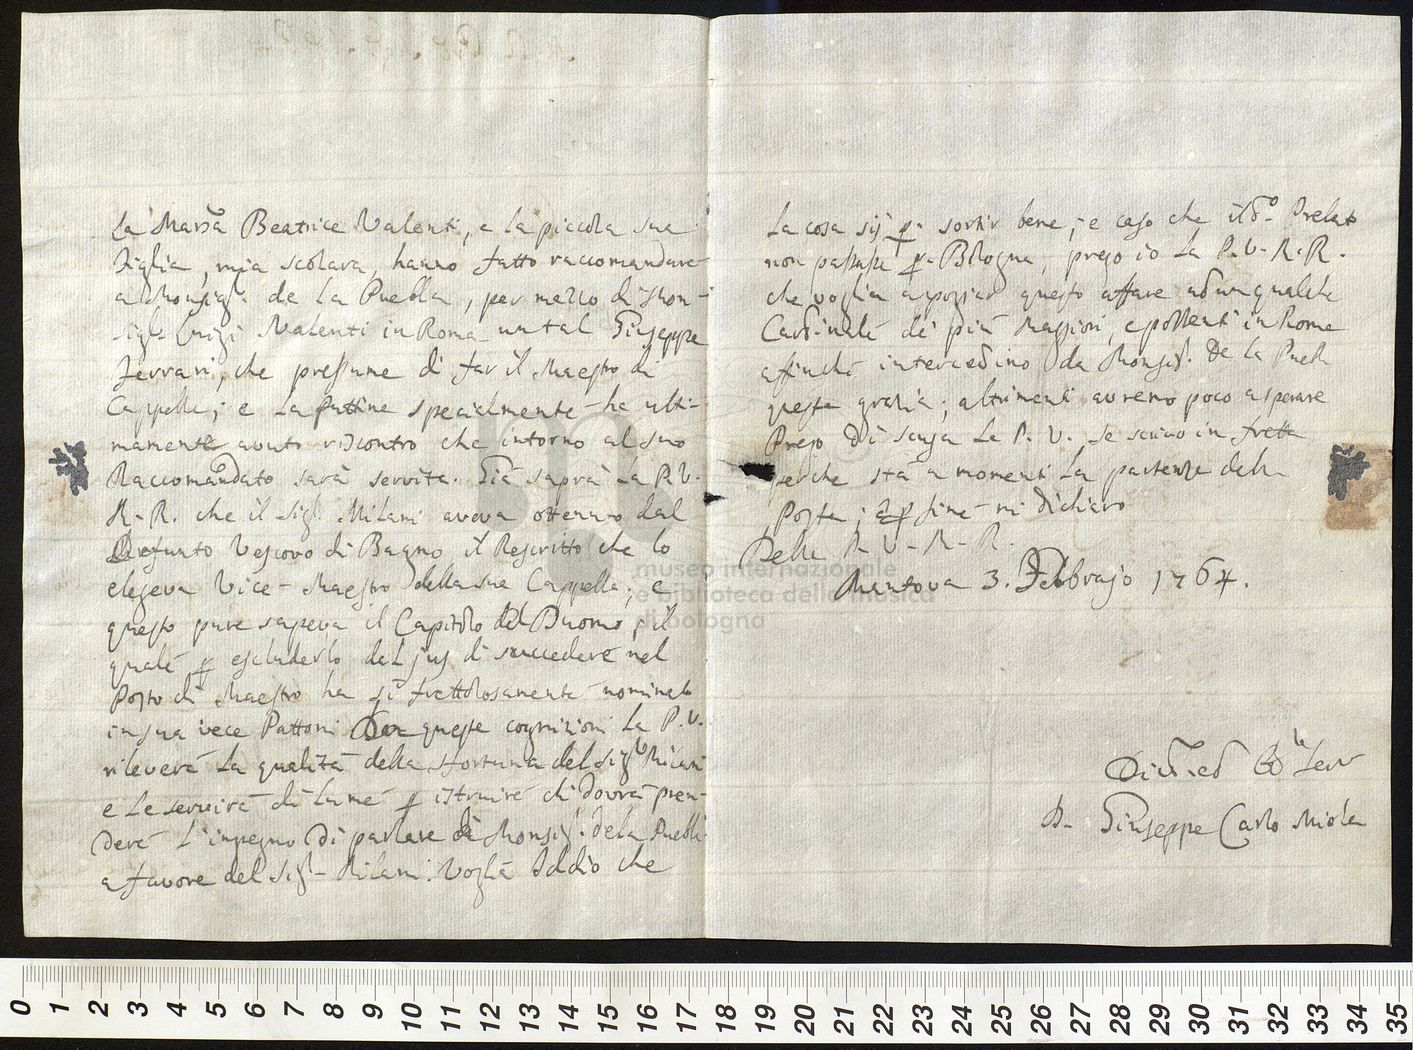 La Marsa Beatrice Valenti, e la piccola sua
Figlia, mia scolara, hanno fatto raccomandare
a Monsigr. de La Puebla, per mezzo di Mon-
sigr. Luigi Valenti in Roma un tal Giuseppe
Ferrari, che presume di far il Maestro di
Cappella; e la puttina specialmente ha ulti-
mamente avuto riscontro che intorno al suo
Raccomandato sarà servita. Già saprà la P. V.
M. R. che il Sigr. Milani aveva ottenuto dal
Defunto Vescovo di Bagno, il Rescritto che lo
elegeva Vice-Maestro della sua Cappella; e
questo pure sapeva il Capitolo del Duomo, il
quale p escluderlo del jus di succedere nel
Posto di Maestro ha sì frettolosamente nominato
in sua vece Pattoni. Da queste cognizioni la P. V.
rileverà la qualità della sfortuna del Sigr. Milani
e le servirà di lume p istruire chi dovrà pren-
dere l'impegno di parlare a Monsigr. de la Puebla
a favore del Sigr. Milani. Voglia Iddio che
la cosa sij p. sortir bene; e caso che il do. Prelato
non passasse p. Bologna, prego io la P. V. R. R.
che voglia appoggiar questo affare ad un qualche
Cardinale de' più Maggiori, e possenti in Roma
affinchè intercedino da Monsigr. De la Puebla
questa grazia; altrimenti avremo poco a sperare
Prego di scusa la P. V. se scrivo in fretta
perche stà a momenti la partenza della
Posta; e p fine mi dichiaro
Della P. V. M. R.
Mantova 3. Febbrajo 1764.
D. Giuseppe Carlo Miola
museo internazionale
e biblioteca della musica
di bologna
0 1 2 3 4 5 6 7 8 9 10 11 12 13 14 15 16 17 18 19 20 21 22 23 24 25 26 27 28 29 30 31 32 33 34 35